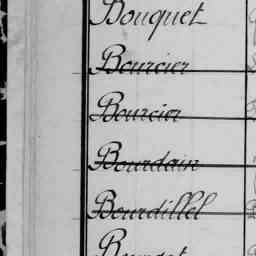 Bouquet
Bourcier
Bourcier
Bourdain
Bourdillel